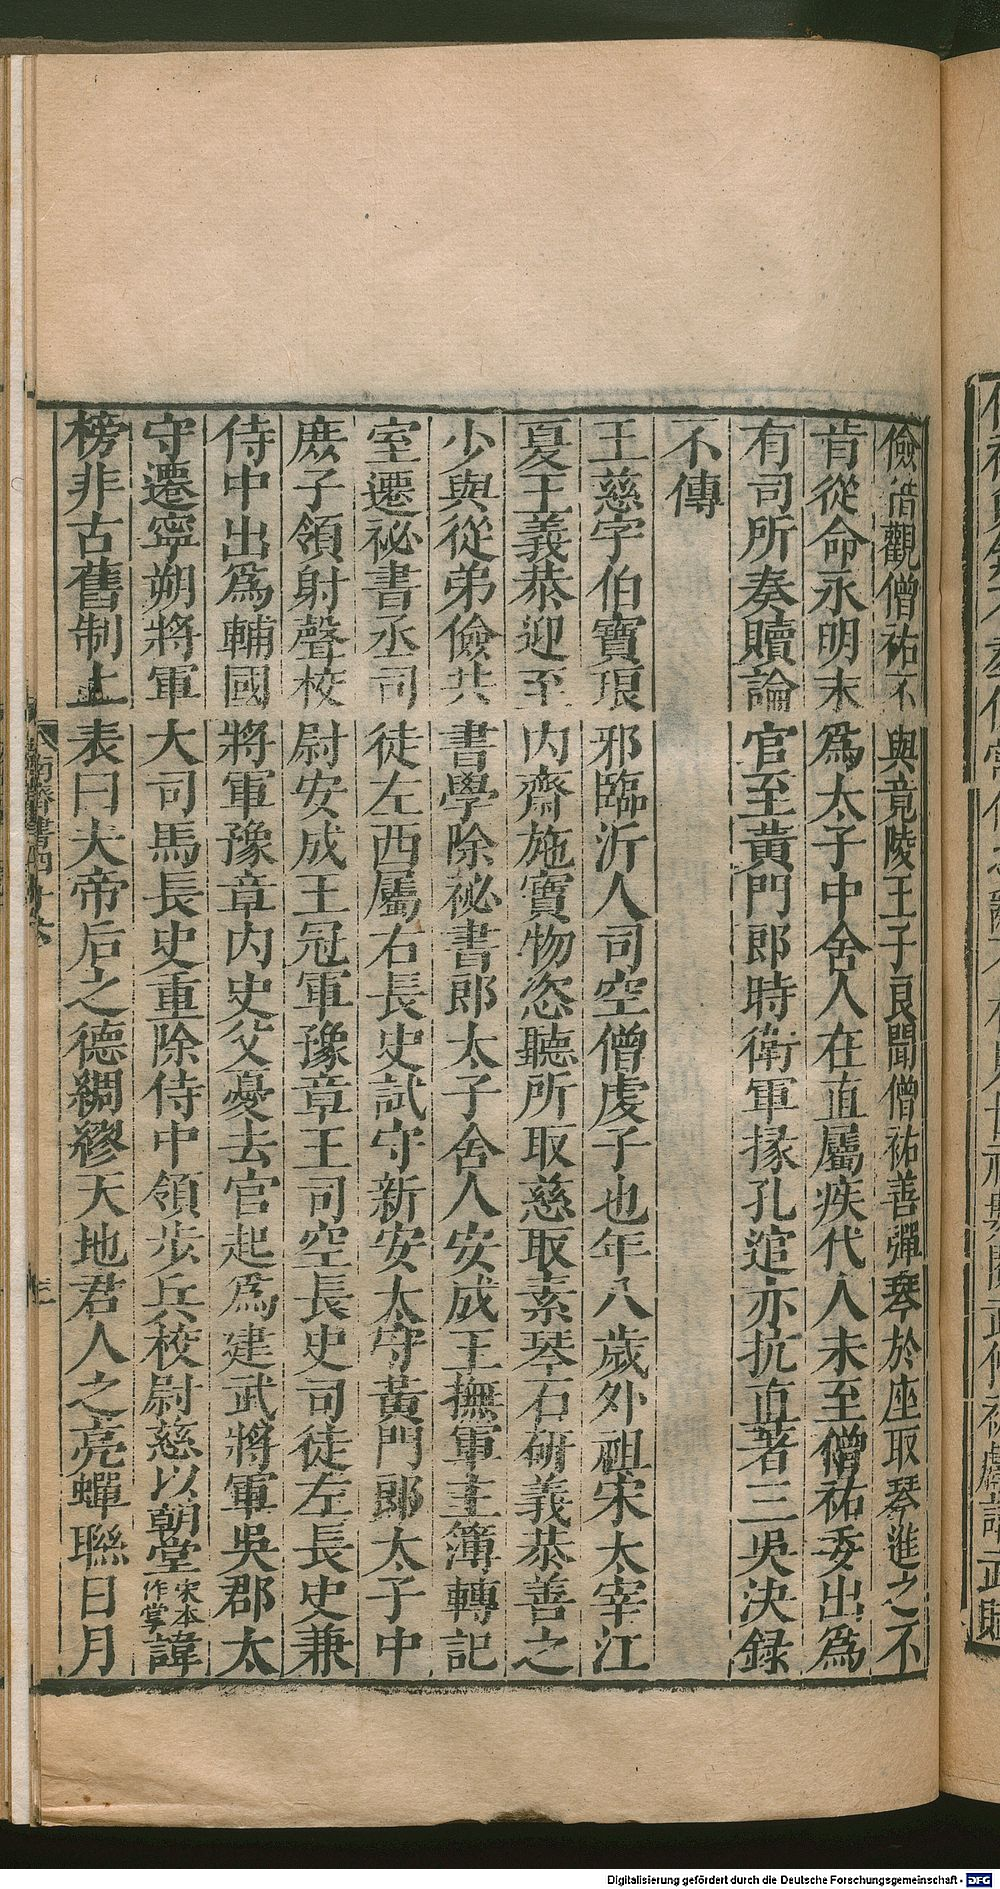 儉借觀僧祐不與竟陵王子良聞僧祐善彈琴於座取琴進之不
肯從命永明末爲太子中舍人在直屬疾代人未至僧祐委出爲
有司所奏贖論官至黃門郎時衛軍掾孔逭亦抗直著三吳決録
不傳
王慈字伯寶琅邪臨沂人司空僧虔子也年八歲外祖宋太宰江
夏王義恭迎至內齋施寶物恣聽所取慈取素琴石硏義恭善之
少與從弟儉共書學除祕書郎太子舍人安成王撫軍主簿轉記
室遷祕書丞司徒左西屬右長史試守新安太守黃門郎太子中
庶子領射聲校尉安成王冠軍豫章王司空長史司徒左長史兼
侍中出爲輔國將軍豫章內史父憂去官起爲建武將軍吳郡太
守遷寧朔將軍大司馬長史重除侍中領步兵校尉慈以朝堂宋本作掌諱
榜非古舊制上表曰夫帝后之德綢繆天地君人之亮蟬聯日月
南齊書四十六
Digitalisierung gefördert durch die Deutsche Forschungsgemeinschaft - DFG